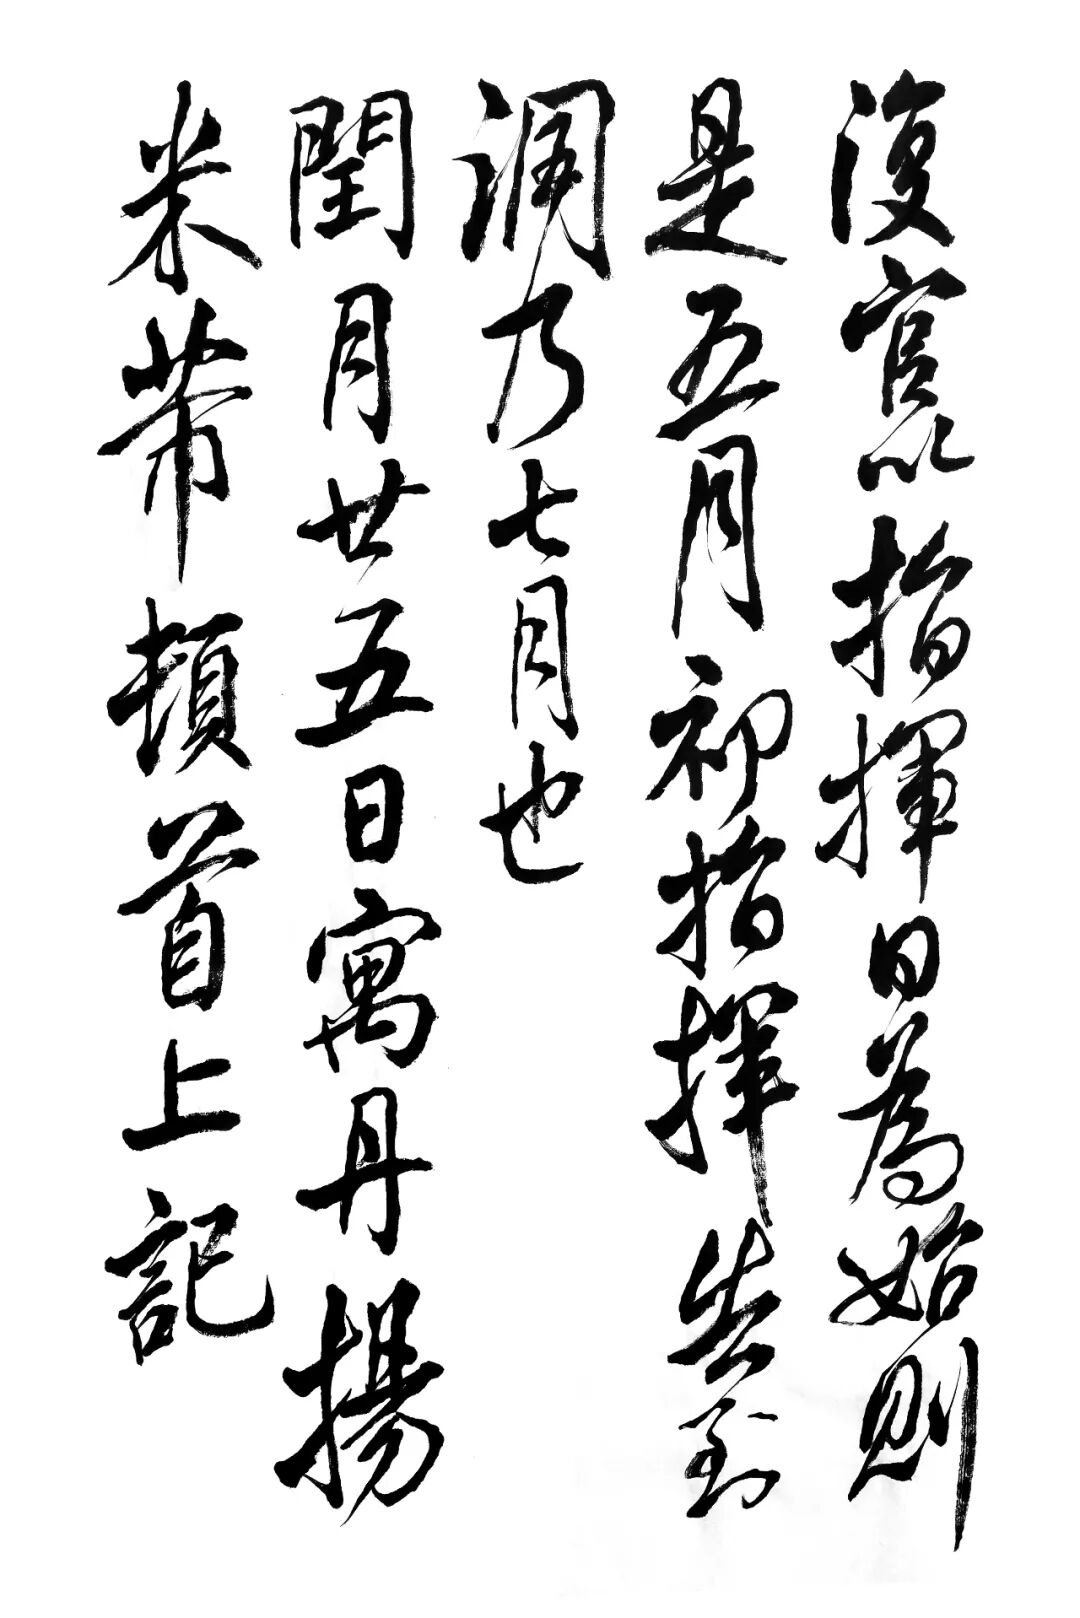 復官以指揮日為始則
是五月初指揮告到
潤乃七月也
閏月廿五日寓丹揚
米芾頓首上記